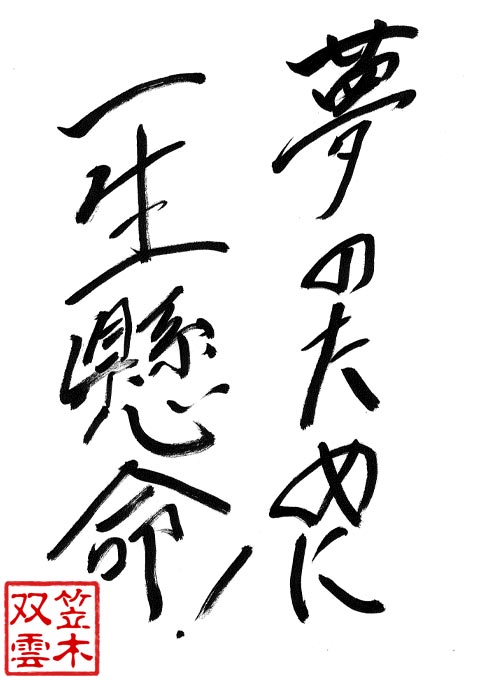 夢のために
一生懸命!
笠木
双雲